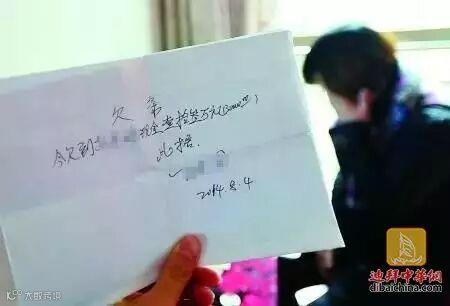 欠条
今欠到 现金壹拾叁万元(130000元)
此据.
2014.8.4
大数跨境
迪拜中华网
dibaichina.com